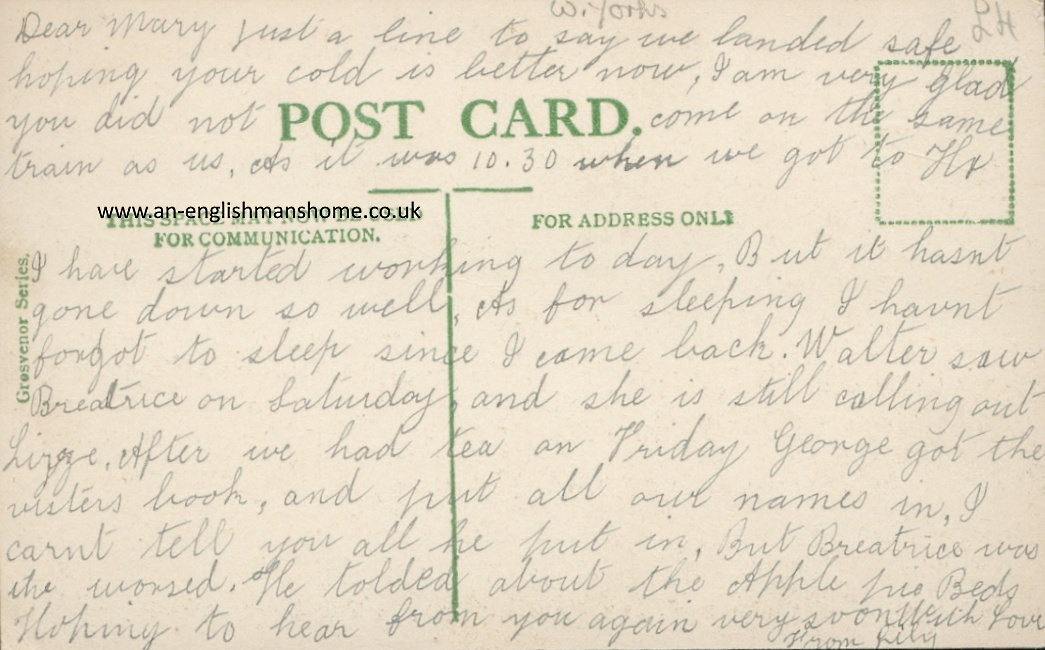 W. Yorks
£4
Dear Mary Just a line to say we landed safe
hoping your cold is better now, I am very glad
you did not come on the same
POST CARD.
train as us, As it was 10.30 when we got to Hx
www.an-englishmanshome.co.uk
THIS SPACE MAY NOW BE USED
FOR COMMUNICATION.
FOR ADDRESS ONLY
Grosvenor Series.
I have started working to day, But it hasnt
gone down so well, As for sleeping I havnt
forgot to sleep since I came back. Walter saw
Breatrice on Saturday, and she is still calling out
Lizze. After we had tea on Friday George got the
visters book, and put all our names in, I
carnt tell you all he put in, But Breatrice was
the worsed. He tolded about the Apple pie Beds
Hoping to hear from you again very soon With Love
From Lily